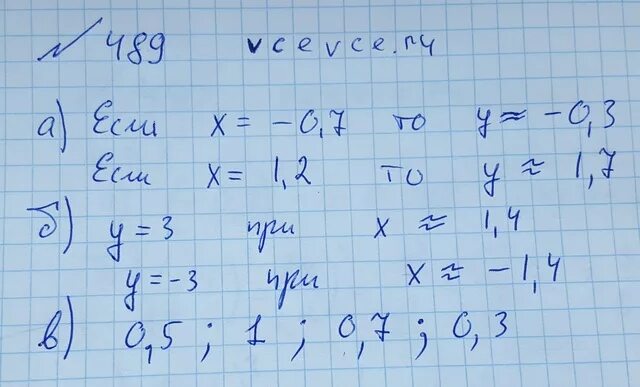 № 489 vcevce.ru
а) Если x = -0,7 то y ≈ -0,3
Если x = 1,2 то y ≈ 1,7
б) y = 3 при x ≈ 1,4
y = -3 при x ≈ -1,4
в) 0,5 ; 1 ; 0,7 ; 0,3